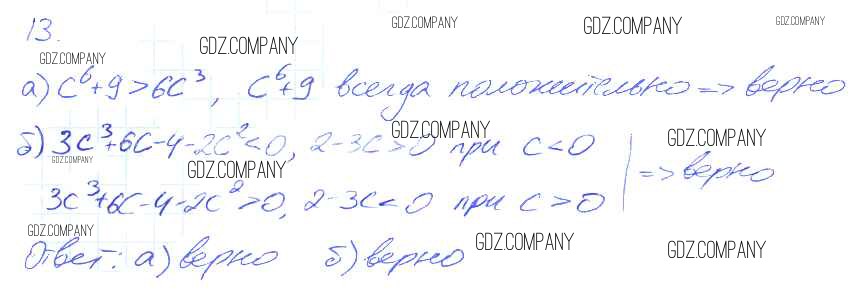 13.
GDZ.COMPANY GDZ.COMPANY GDZ.COMPANY GDZ.COMPANY
GDZ.COMPANY
а) c⁶+9>6c³, c⁶+9 всегда положительно => верно
GDZ.COMPANY GDZ.COMPANY
б) 3c³+6c-4-2c²<0, 2-3c>0 при c<0
GDZ.COMPANY GDZ.COMPANY
=> верно
3c³+6c-4-2c²>0, 2-3c<0 при c>0
GDZ.COMPANY GDZ.COMPANY GDZ.COMPANY
Ответ: а) верно б) верно